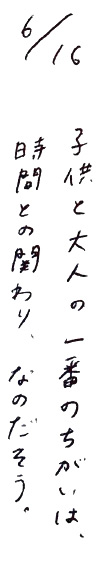 6/16
子供と大人の一番のちがいは、
時間との関わり、なのだそう。